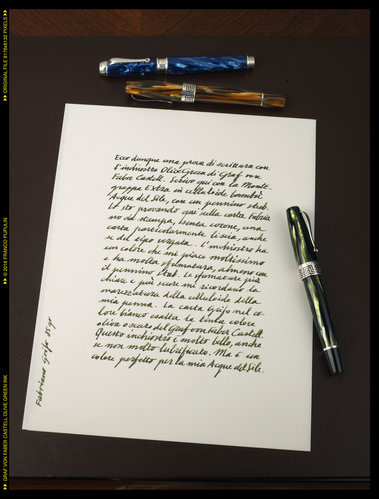 ORIGINAL FILE 8176x6132 PIXELS
© 2019 FRANCO PUPULIN
GRAF VON FABER CASTELL OLIVE GREEN INK
Ecco dunque una prova di scrittura con
l'inchiostro Olive Green di Graf von
Faber Castell. Scrivo qui con la Monte-
grappa Extra in celluloide bamboo
Acque del Sile, con un pennino stub.
Lo sto provando qui sulla carta Fabria
no da stampa, senza cotone, una
carta particolarmente liscia, anche
se del tipo vergata. L'inchiostro ha
un colore che mi piace moltissimo
e ha molta sfumatura, almeno con
il pennino stub. Le sfumature più
chiare e più scure mi ricordano la
marezzatura della celluloide della
mia penna. La carta Grifo nel co
lore bianco esalta la tinta colore
oliva oscuro del Graf von Faber Castell.
Questo inchiostro è molto bello, anche
se non molto lubrificato. Ma è un
colore perfetto per la mia Acque del Sile.
Fabriano Grifo 85 gr